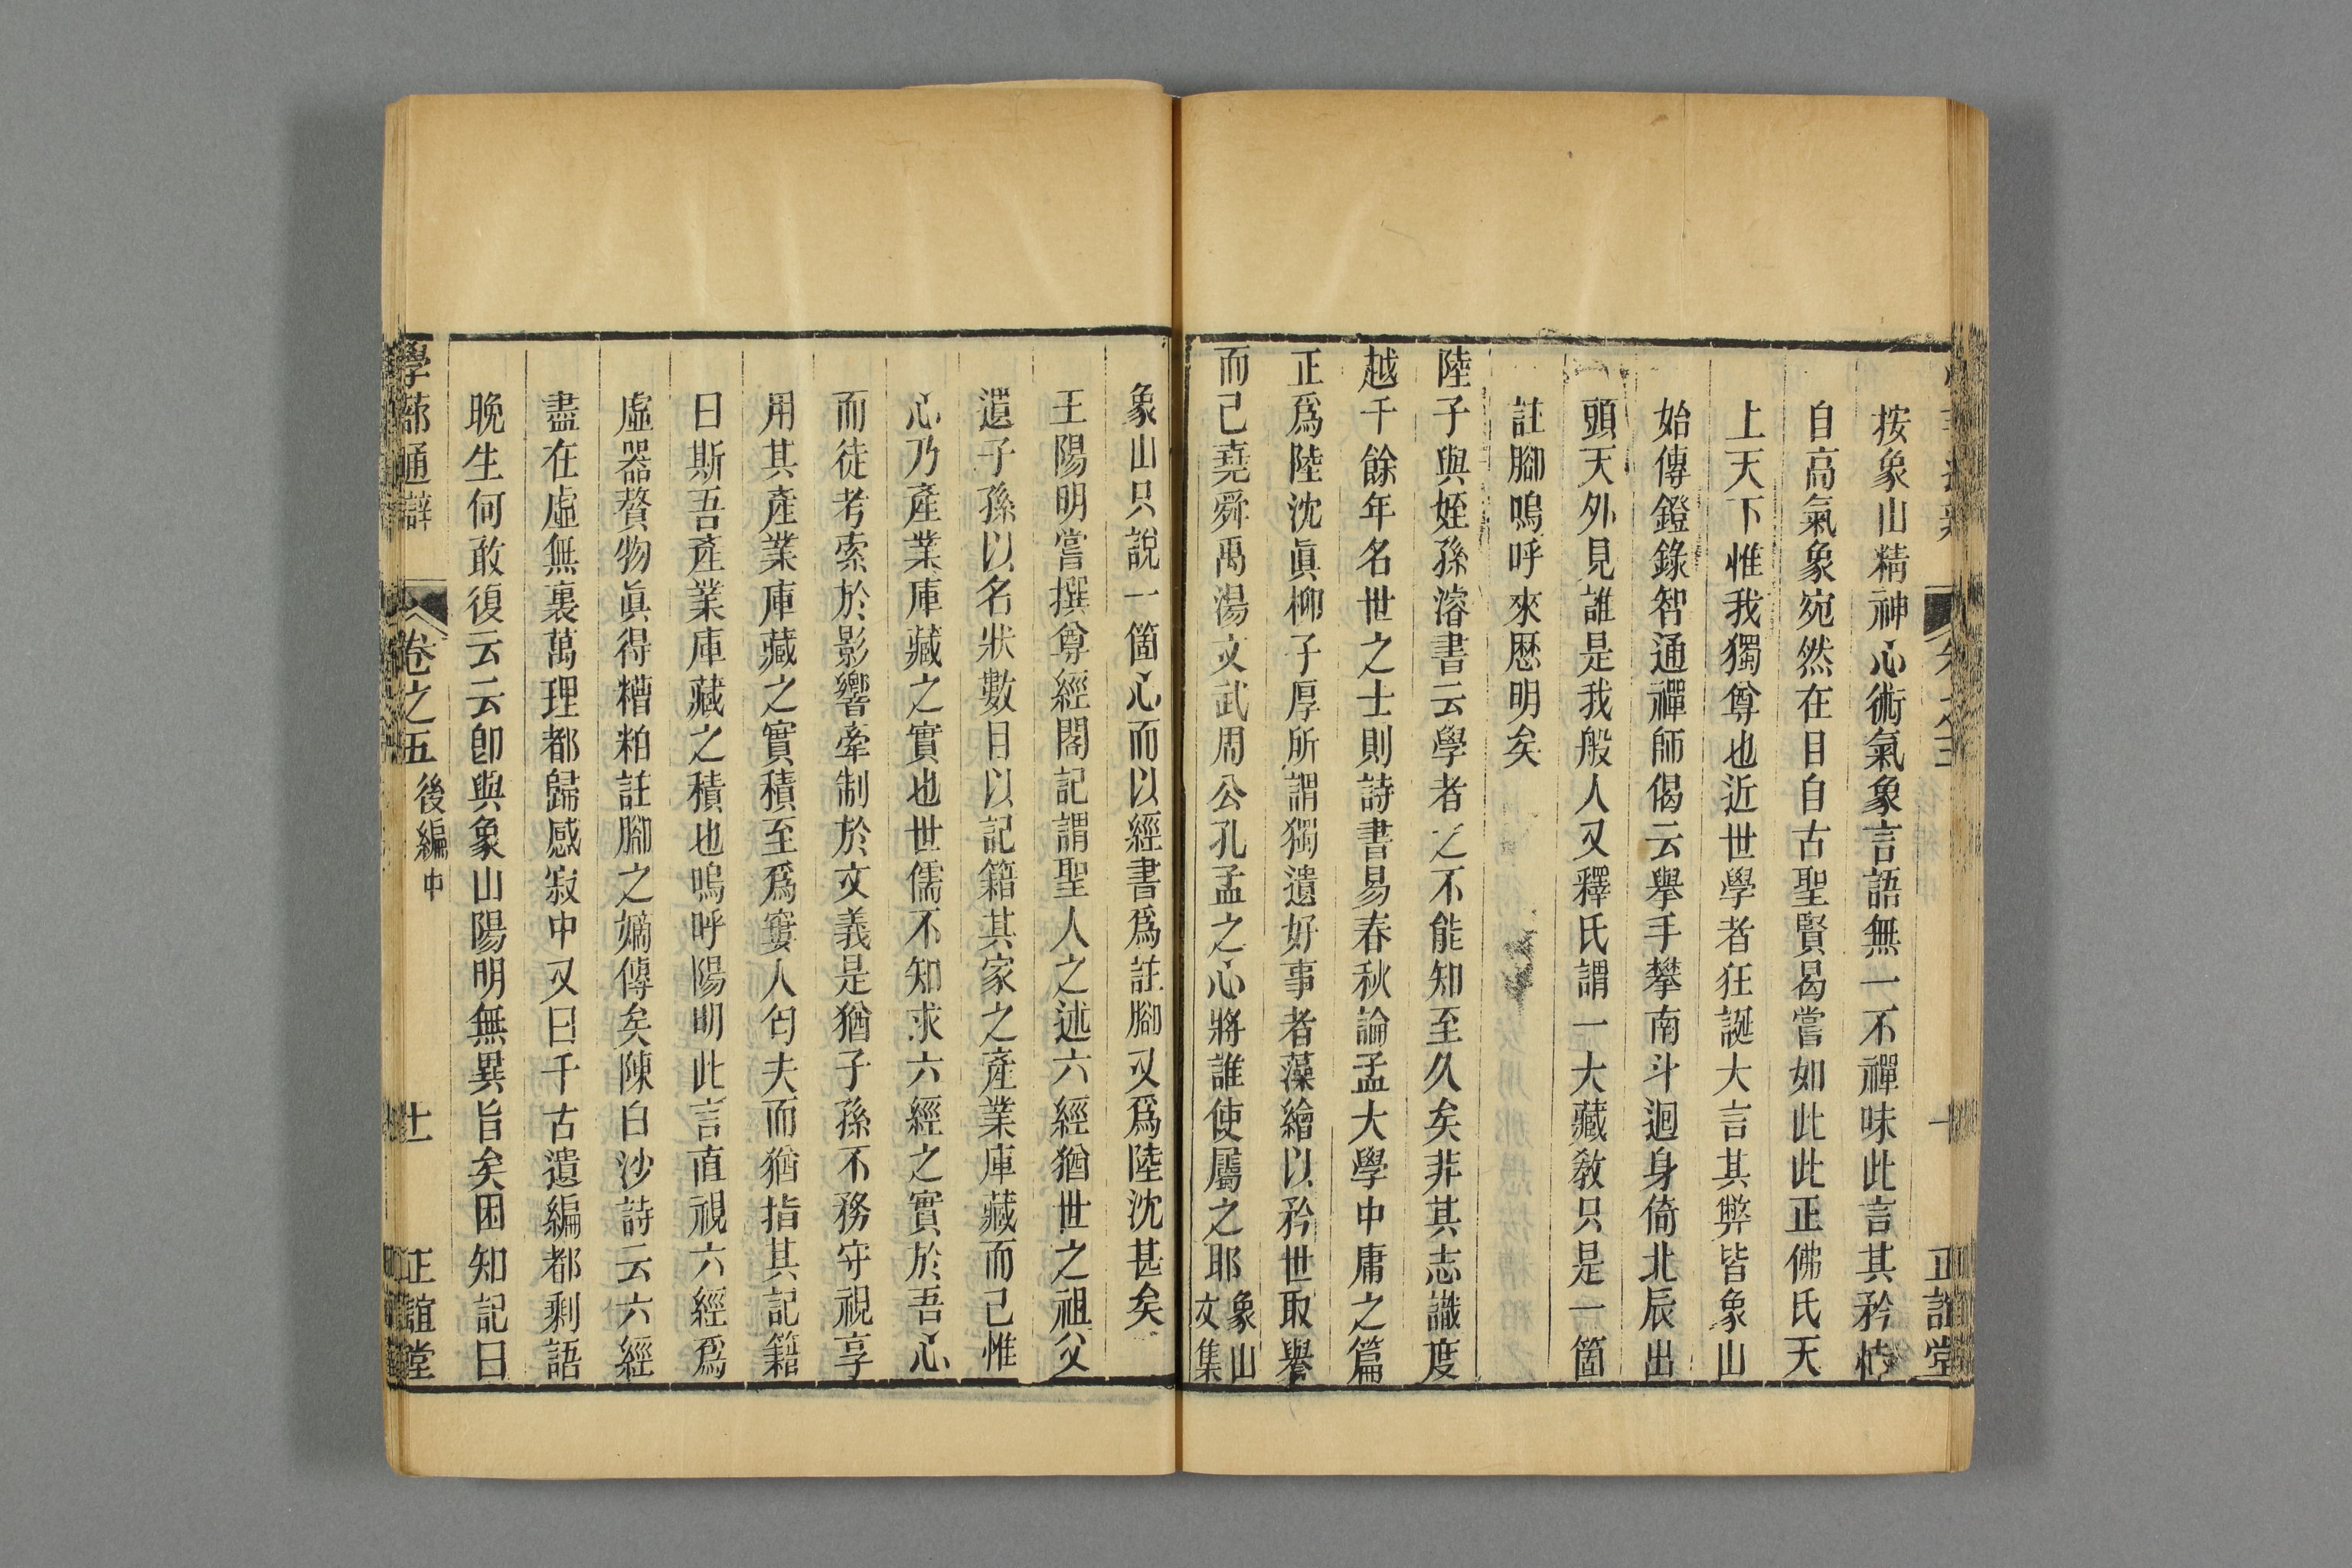 正誼堂
按象山精神心術氣象言語無一不禪味此言其矜恃
自高氣象宛然在目自古聖賢曷嘗如此此正佛氏天
上天下惟我獨尊也近世學者狂誕大言其弊皆象山
始傳鐙錄智通禪師偈云舉手攀南斗迴身倚北辰出
頭天外見誰是我般人又釋氏謂一大藏教只是一箇
註腳嗚呼來歷明矣
陸子與姪孫濬書云學者之不能知至久矣非其志識度
越千餘年名世之士則詩書易春秋論孟大學中庸之篇
正爲陸沈眞柳子厚所謂獨遺好事者藻繪以矜世取譽
而已堯舜禹湯文武周公孔孟之心將誰使屬之耶象山文集
象山只說一箇心而以經書爲註腳又爲陸沈甚矣
王陽明嘗撰尊經閣記謂聖人之述六經猶世之祖父
遺子孫以名狀數目以記籍其家之產業庫藏而已惟
心乃產業庫藏之實也世儒不知求六經之實於吾心
而徒考索於影響牽制於文義是猶子孫不務守視享
用其產業庫藏之實積至爲窶人匄夫而猶指其記籍
曰斯吾產業庫藏之積也嗚呼陽明此言直視六經爲
虛器贅物眞得糟粕註腳之嫡傳矣陳白沙詩云六經
盡在虛無裏萬理都歸感寂中又曰千古遺編都剩語
晚生何敢復云云卽與象山陽明無異旨矣困知記曰
學蔀通辯 卷之五 後編中 十一 正誼堂